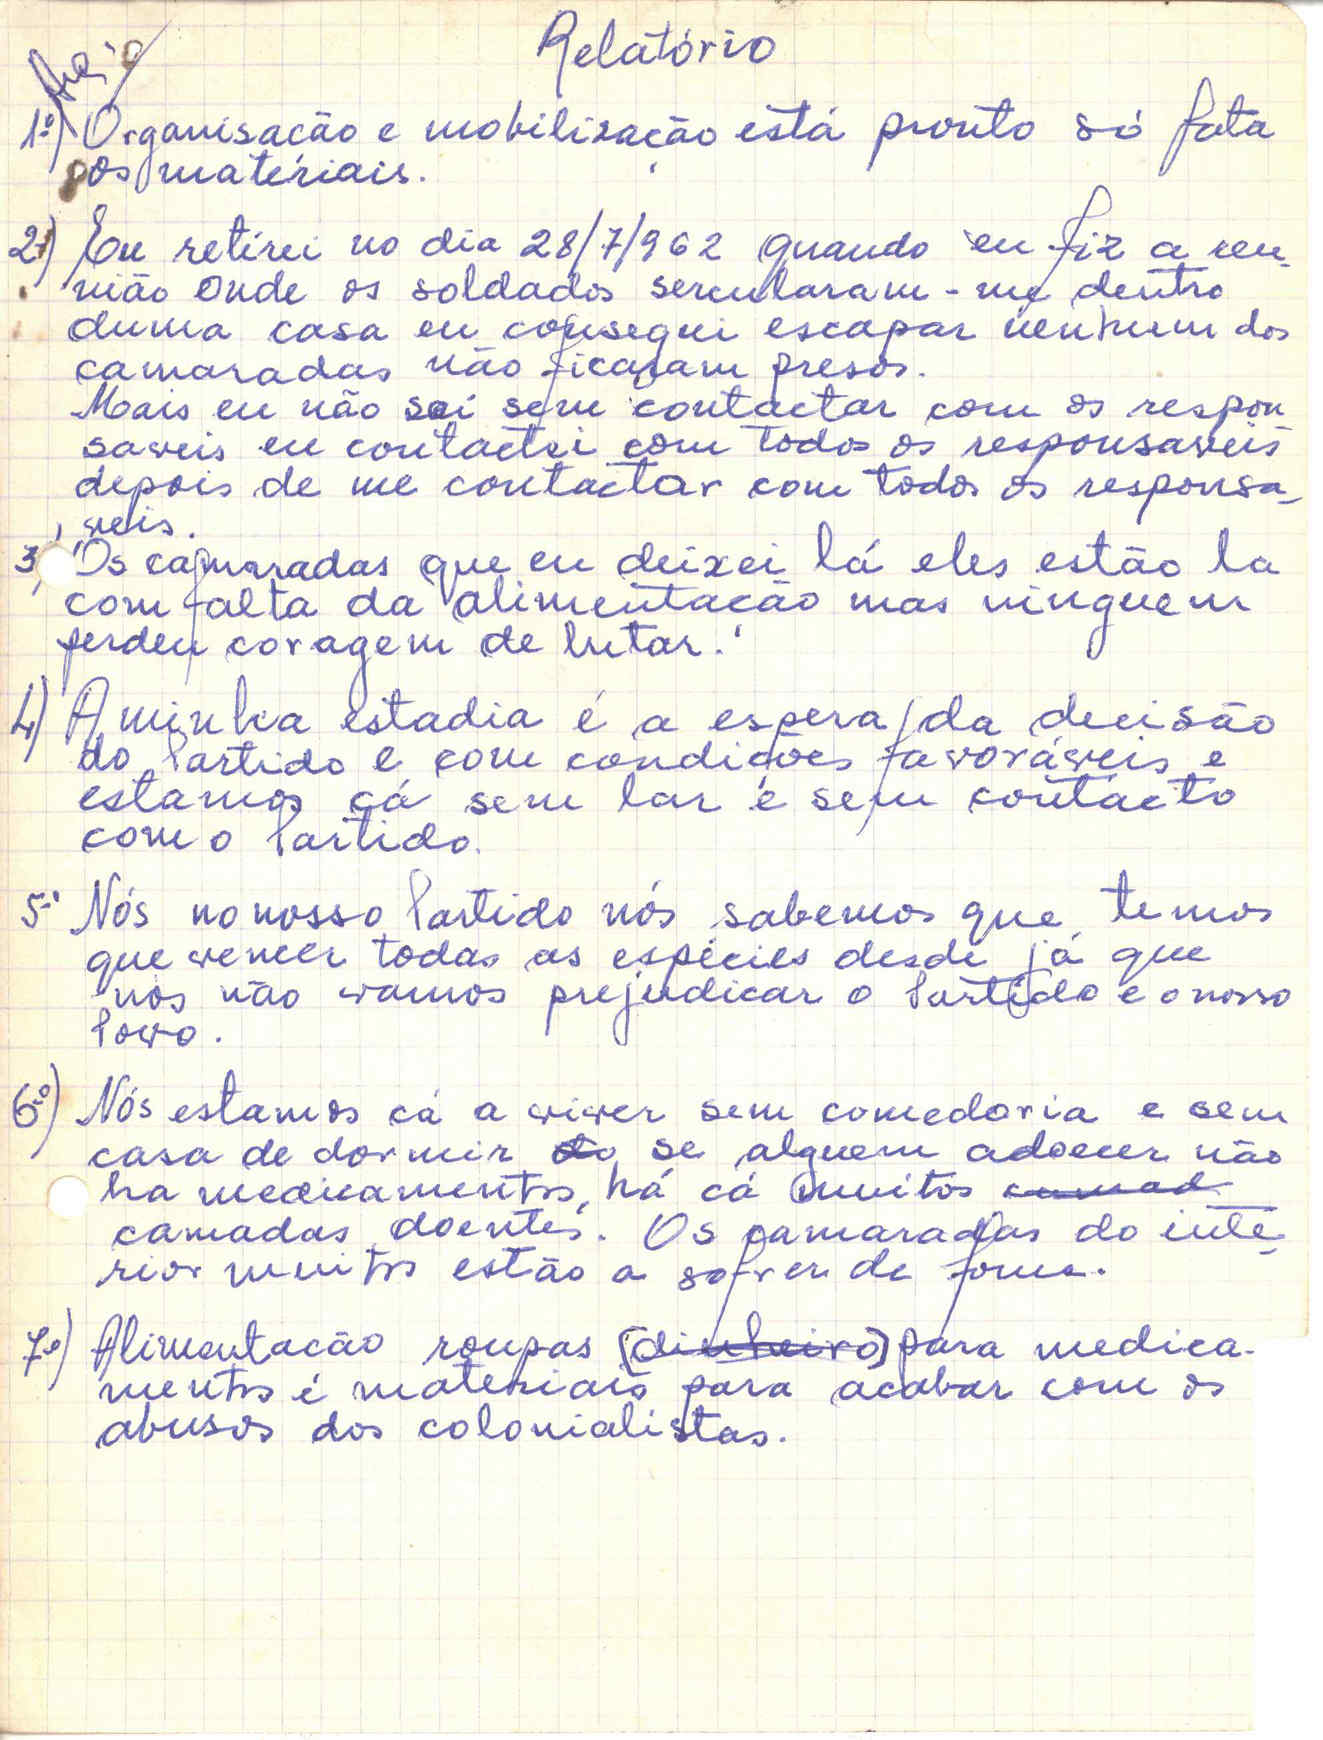 Relatório
1º) Organisacão e mobilisacão está pronto só fata
os matériais.
2º) Eu retirei no dia 28/7/962 quando eu fiz a reu-
nião onde os soldados sercularam-me dentro
duma casa eu consegui escapar nenhum dos
camaradas não ficaram presos.
Mais eu não sai sem contactar com os respon
saveis eu contactei com todos os responsaveis
depois de me contactar com todos os responsa-
veis.
3) Os camaradas que eu deixei lá eles estão la
com falta da alimentacão mas ninguem
perdeu coragem de lutar.
4) A minha estadia é a espera da decisão
do Partido e com condições favoráveis e
estamos cá sem lar e sem contacto
com o Partido.
5º Nós no nosso Partido nós sabemos que temos
que vencer todas as espécies desde já que
nós não vamos prejudicar o Partido e o nosso
Povo.
6º) Nós estamos cá a viver sem comedoria e sem
casa de dormir do se alguem adoecer não
ha medicamentos, há cá muitos camad
camadas doentes. Os camaradas do inte-
rior muitos estão a sofrer de fome.
7º) Alimentacão roupas (dinheiro) para medica-
mentos é materiais para acabar com os
abusos dos colonialistas.